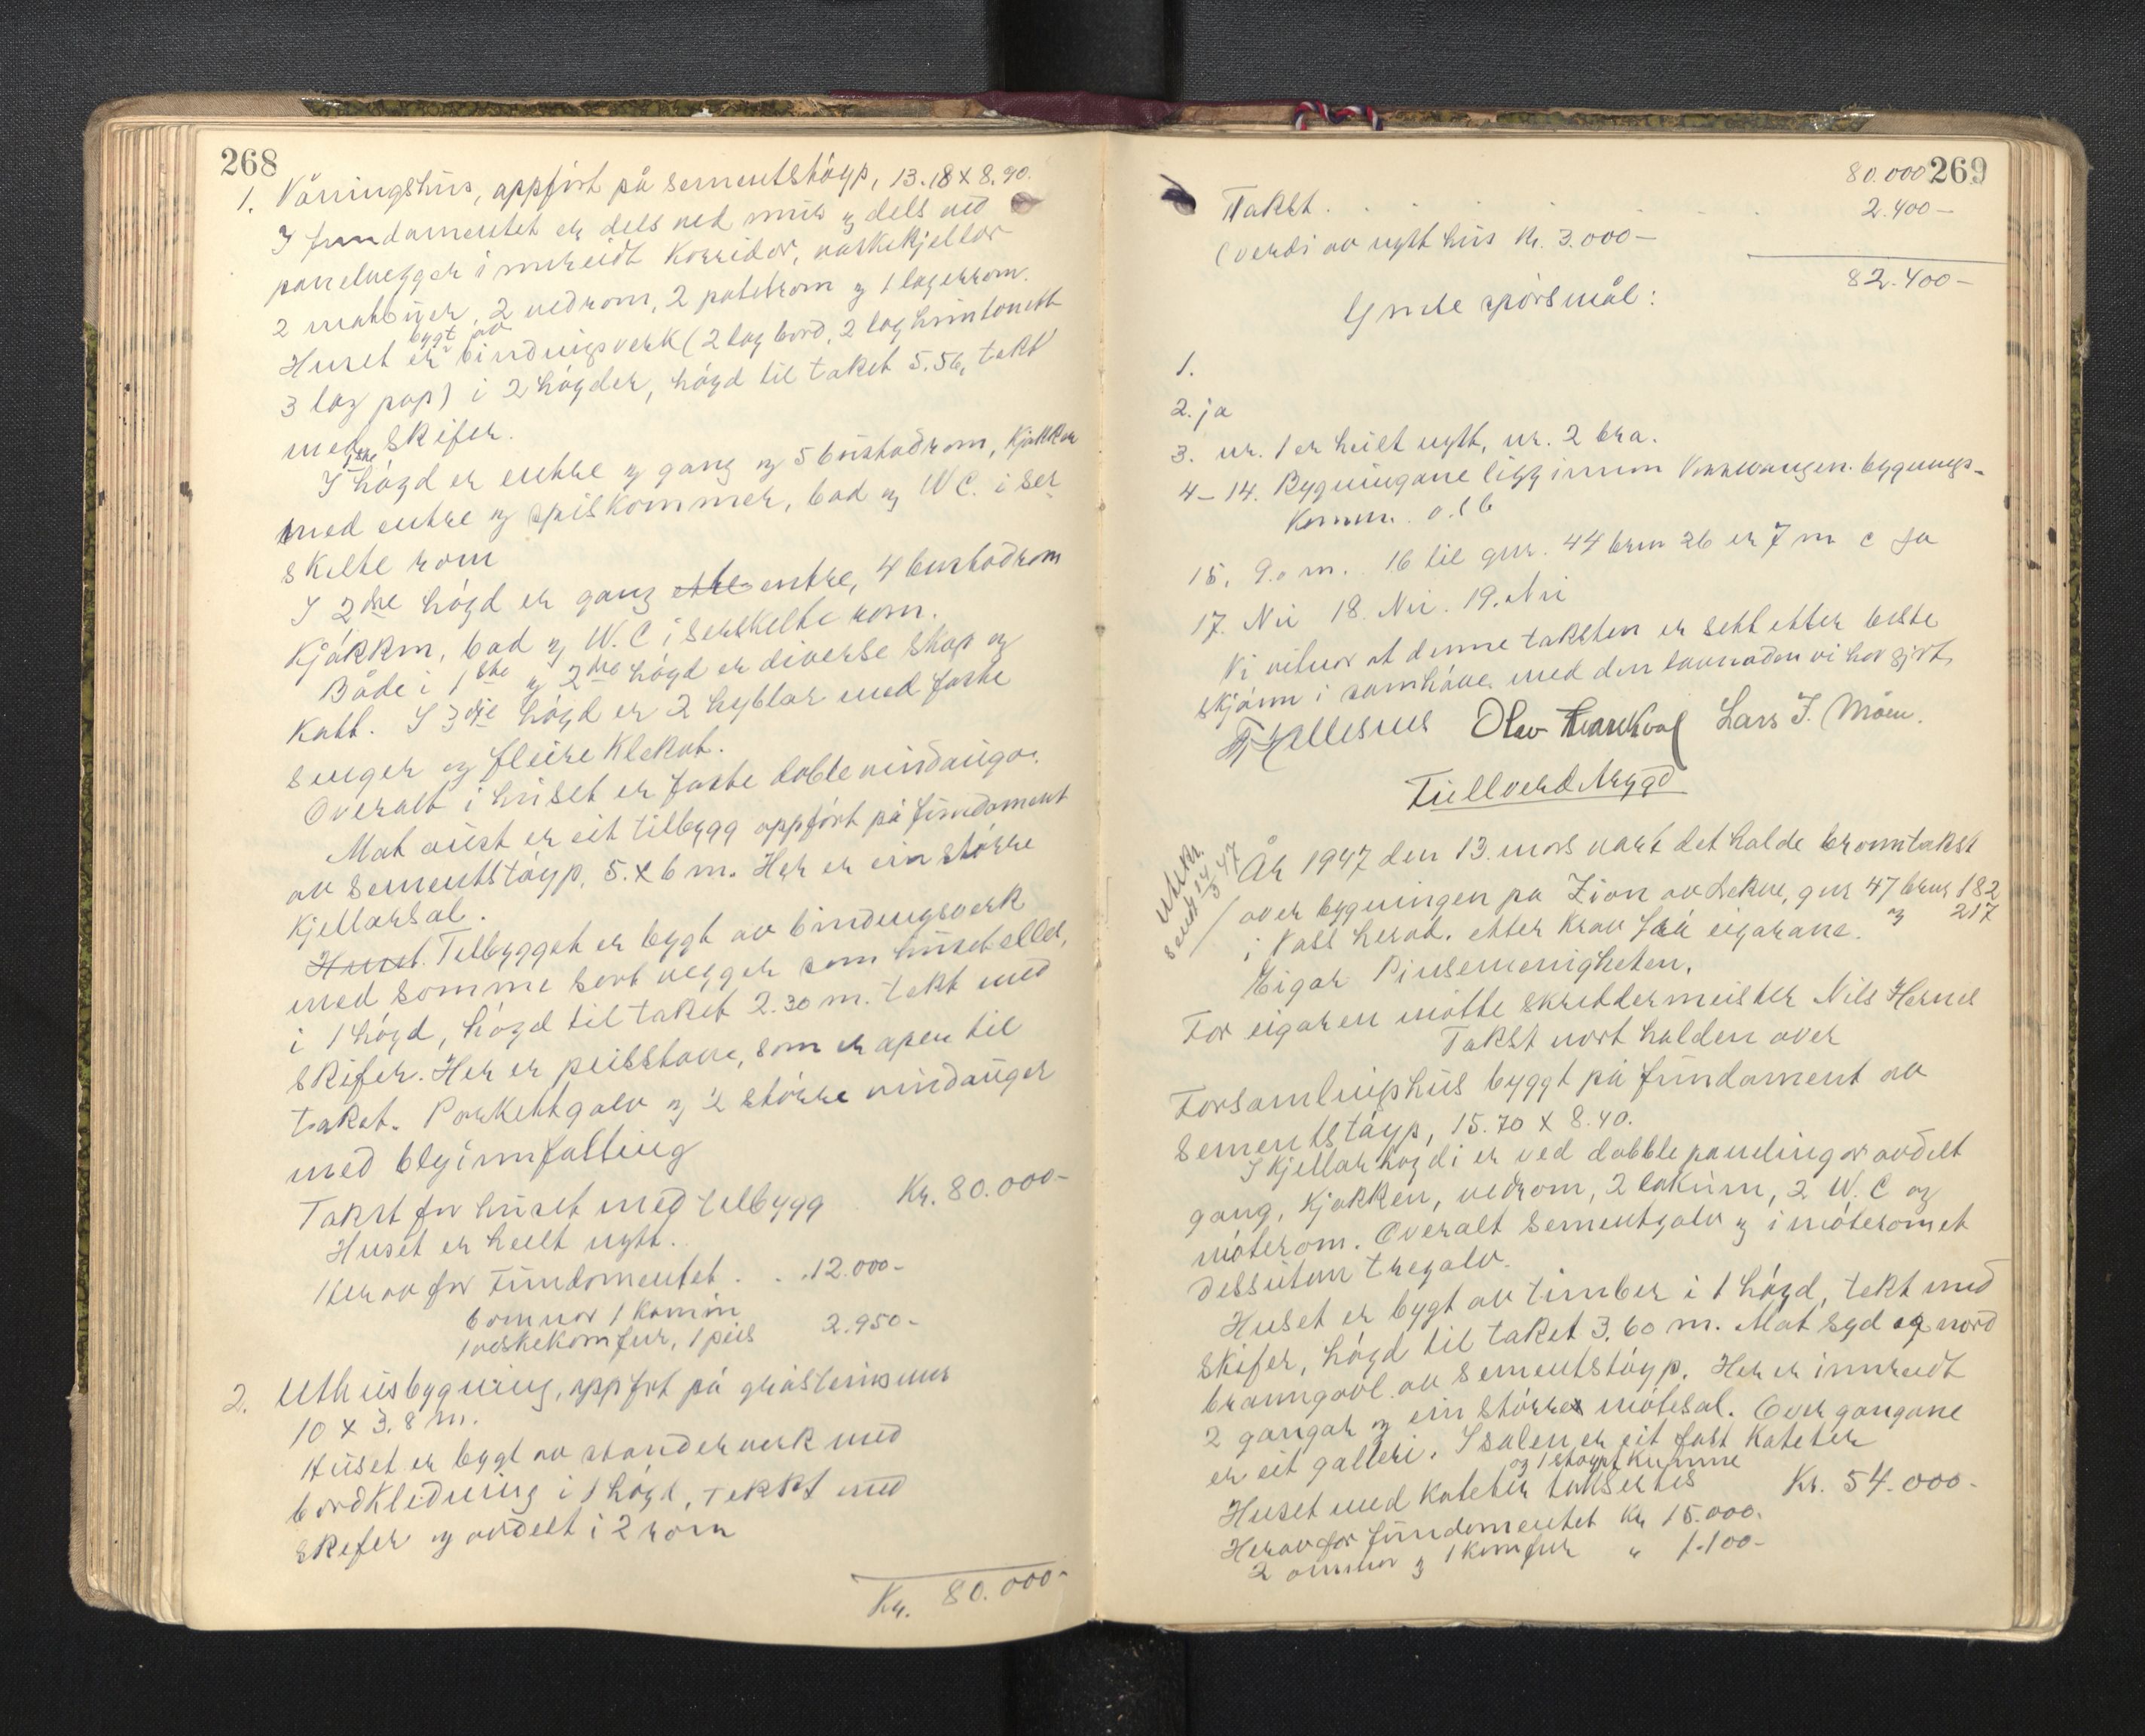 268
1. Våningshus, oppført på sementstøyp, 13.18 x 8.90.
I fundamentet er dels ved mur og dels ved
panelvegger innreidt korridor, vaskekjellar
2 matbuer, 2 vedrom, 2 potetrom og 1 lagerrom.
Huset er bygt av bindingsverk (2 lag bord, 2 lag huntonitt
3 lag pap) i 2 høgder, høgd til taket 5.56, tekt
med skifer.
I 1ste høgd er entre og gang og 5 bustadrom, kjøkken
med entre og spiskammer, bad og W.C. i ser
skilte rom
I 2dre høgd er gang entre, 4 bustadrom
kjøkken, bad og W.C i serskelte rom.
Både i 1ste og 2dre høgd er diverse skap og
kott. I 3dje høgd er 2 hyblar med faste
senger og fleire klekot.
Overalt i huset er faste doble vindaugo.
Mot aust er eit tilbygg oppført på fundament
av sementstøyp, 5. x 6 m. Her er ein større
kjellarsal.
Huset. Tilbygget er bygt av bindingsverk
med somme sort vegger som huset elles,
i 1 høgd, høgd til taket 2.30 m. tekt med
skifer. Her er peisstove, som er open til
taket. Parkettgolv og 2 større vindauger
med blyinnfatting
Takst for huset med tilbygg Kr. 80.000-
Huset er heilt nytt.
Herav for Fundamentet . . . 12.000-
6 omnar 1 kamin
1 vaskekomfur, 1 peis 2.950-
2. Uthusbygning, oppført på gråsteinsmur
10 x 3.8 m.
Huset er bygt av standerverk med
bordkledning i 1 høgd, tekt med
skifer og avdelt i 2 rom
Kr. 80.000-
269
80.000
Takst . . . . . . 2.400-
(verdi av nytt hus kr. 3.000-
82.400-
Ymse spørsmål:
1.
2. ja
3. nr. 1 er heilt nytt, nr. 2 bra.
4-14. Bygningane ligg innum Vossevangen bygnings-
kommun.
15. 16 til gnr. 44 brnr 26 er 7 m
17. Nei 18. Nei. 19. Nei
Vi vitnar at denne taksten er sett etter beste
skjønn i samhøve med den lovnaden vi har gjort.
Olav Lars J. Møen.
Fullverdstrygd
Utskr.
sendt 14/5 47
År 1947 den 13. mars vart det halde branntakst
over bygningen på Zion av Lekve, gnr 47 brnr 182
i Voss herad. etter krav frå eigarane. og 217
Eigar Pinsemenigheten.
For eigaren møtte skreddermeister Nils Hernes
Takst vort halden over
Forsamlingshus byggt på fundament av
sementstøyp, 15.70 x 8.40.
I kjellarhøgdi er ved dobble panelingar avdelt
gang, kjøkken, vedrom, 2 lokum, 2 W.C og
møterom. Overalt sementgolv og i møteromet
dessutan tregolv.
Huset er bygt av timber i 1 høgd, tekt med
skifer, høgd til taket 3.60 m. Mot syd og nord
branngavl av sementstøyp. Her er innreidt
2 gangar og ein større møtesal. Over gangane
er eit galleri. I salen er eit fast kateter
og 1 støypt kumme
Huset med kateter takseres Kr. 54.000-
Herav for fundamentet Kr 15.000.
2 omnar og 1 komfur " 1.100-